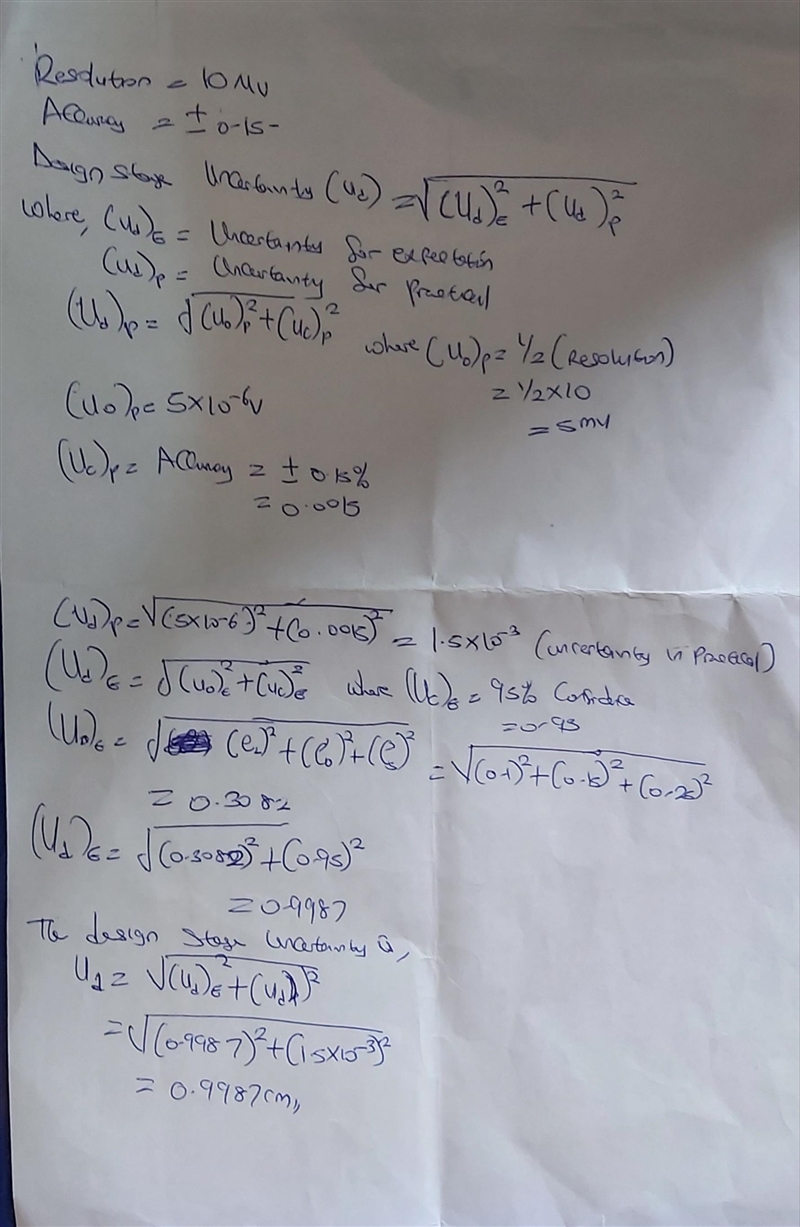 Resolution = 10 MV
Accuracy = ± 0.15-
Design stage Uncertainty (Ud) = √(Ud)²E + (Ud)²P
where, (Ud)E = Uncertainty for expectation
(Ud)P = Uncertainty for Practical
(Ud)P = √(U0)²P + (Uc)²P where (U0)P = 1/2 (Resolution)
= 1/2 × 10
(U0)P = 5×10-6V
= 5mV
(Uc)P = Accuracy = ± 0.15%
= 0.0015
(Ud)P = √(5×10-6)² + (0.0015)² = 1.5×10-3 (uncertainty in Practical)
(Ud)E = √(U0)²E + (Uc)²E where (Uc)E = 95% Confidence
= 0.95
(U0)E = √(e)² + (e)² + (e)² = √(0.1)² + (0.15)² + (0.25)²
= 0.3082
(Ud)E = √(0.3082)² + (0.95)²
= 0.9987
The design stage Uncertainty is,
Ud = √(Ud)²E + (Ud)²
= √(0.9987)² + (1.5×10-3)²
= 0.9987cm,,